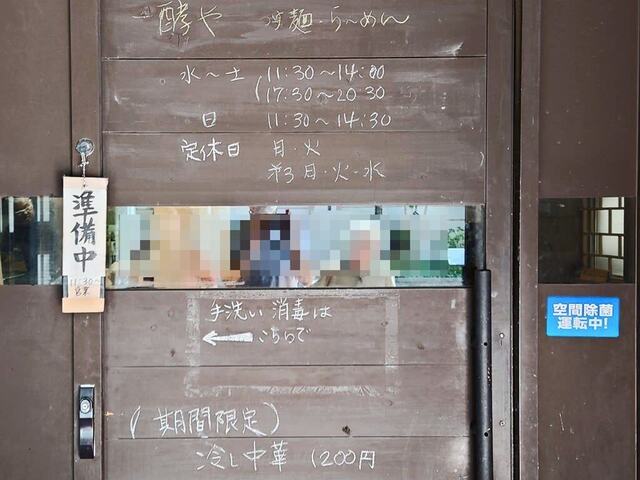 酵や 麺・らーめん
水～土 11:30～14:00
17:30～20:30
日 11:30～14:30
定休日 月・火
第3月・火・水
準備中
11:30～
営業
手洗い 消毒は
← こちらで
空間除菌
運転中!
(期間限定)
冷し中華 1200円